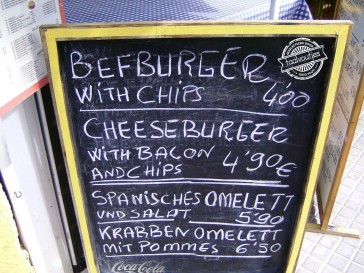 BEFBURGER
WITH CHIPS 4'00
CHEESEBURGER
WITH BACON 4'90€
AND CHIPS
SPANISCHES OMELETT
UND SALAT 5'90
KRABBEN OMELETT
MIT POMMES 6'50
Coca-Cola
taalvoutjes